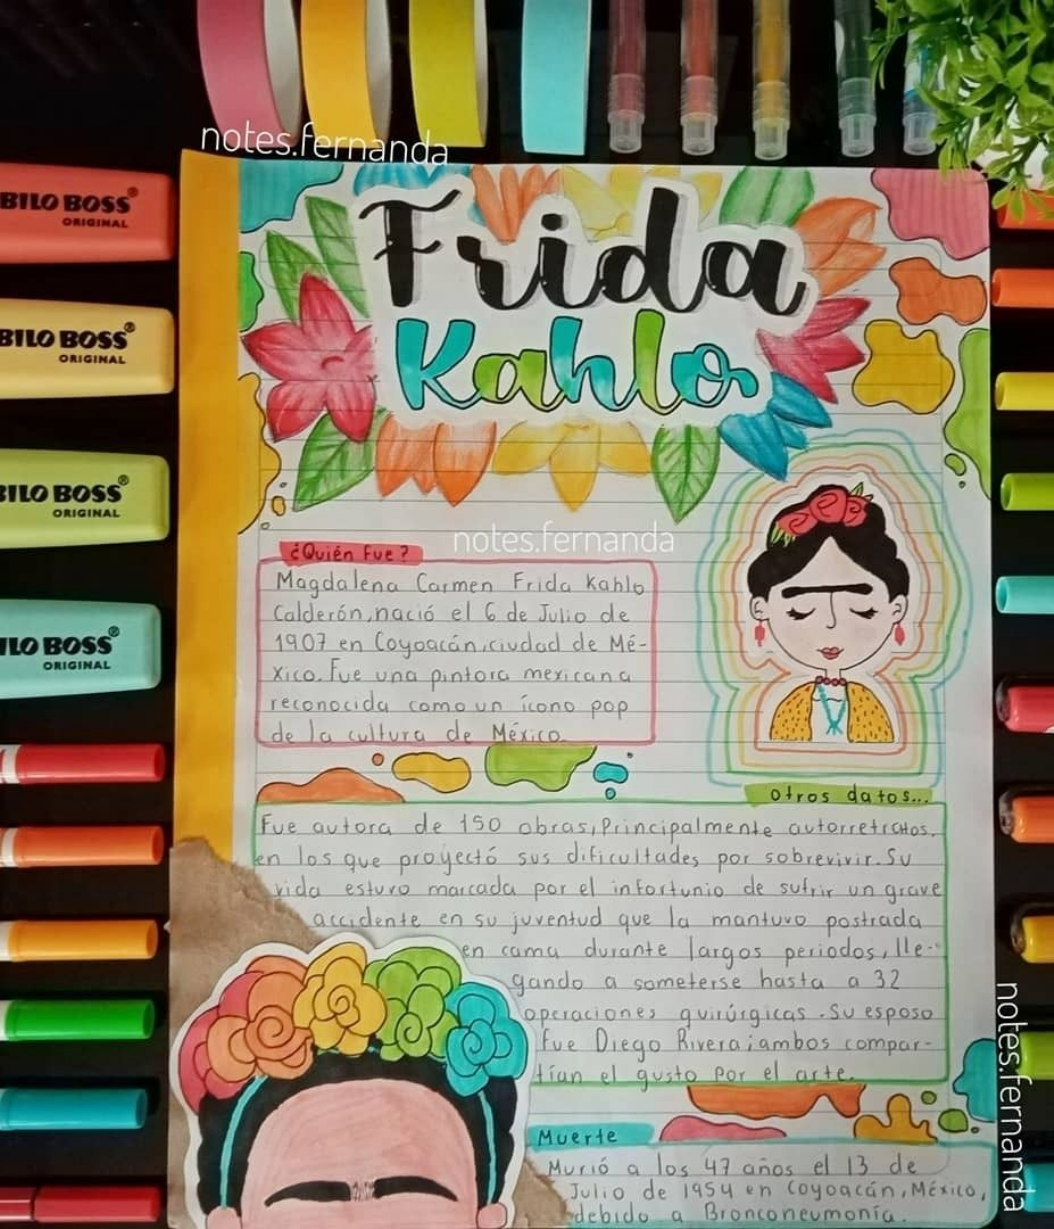 notes.fernanda
BILO BOSS®
ORIGINAL
BILO BOSS®
ORIGINAL
BILO BOSS®
ORIGINAL
ILO BOSS®
ORIGINAL
Frida
Kahlo
notes.fernanda
¿Quién fue?
Magdalena Carmen Frida Kahlo
Calderón, nació el 6 de Julio de
1907 en Coyoacán, ciudad de Mé-
xico. Fue una pintora mexicana
reconocida como un ícono pop
de la cultura de México.
otros datos...
Fue autora de 150 obras, Principalmente autorretratos,
en los que proyectó sus dificultades por sobrevivir. Su
vida estuvo marcada por el infortunio de sufrir un grave
accidente en su juventud que la mantuvo postrada
en cama durante largos periodos, lle-
gando a someterse hasta a 32
operaciones quirúrgicas. Su esposo
fue Diego Rivera; ambos compar-
tían el gusto por el arte.
Muerte
Murió a los 47 años el 13 de
Julio de 1954 en Coyoacán, México,
debido a Bronconeumonía.
notes.fernanda